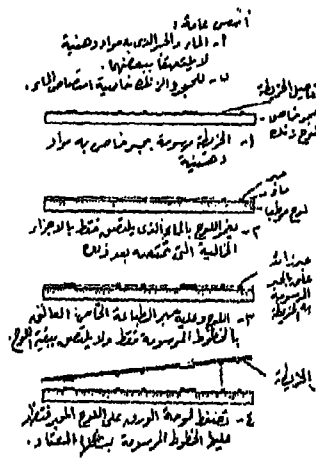 أسس عامة :
١- الماء والحبر الذى به مواد دهنية
لا يلتصقا ببعضهما .
٢- للحجر والزنك خاصية امتصاص الماء .
تفاصيل الخريطة
حجر خاص
لوح زنك
١- الخريطة مرسومة بحبر خاص به مواد
دهنية
حبر
ماء
لوح مرطب
٢- يغمر اللوح بالماء الذى يلتصق فقط بالاجزاء
الخالية التى تمتصه بعد ذلك
حبر
عالق بالحبر
المرسومة
به الخريطة
٣- اللوح وعليه حبر الطباعة الخاص العالق
بالخطوط المرسومة فقط ولا يلتصق ببقية اللوح .
الخريطة
٤- تضغط لوحة الورق على اللوح المحبر فتظهر
عليها الخطوط المرسومة بشكلها المعتاد .